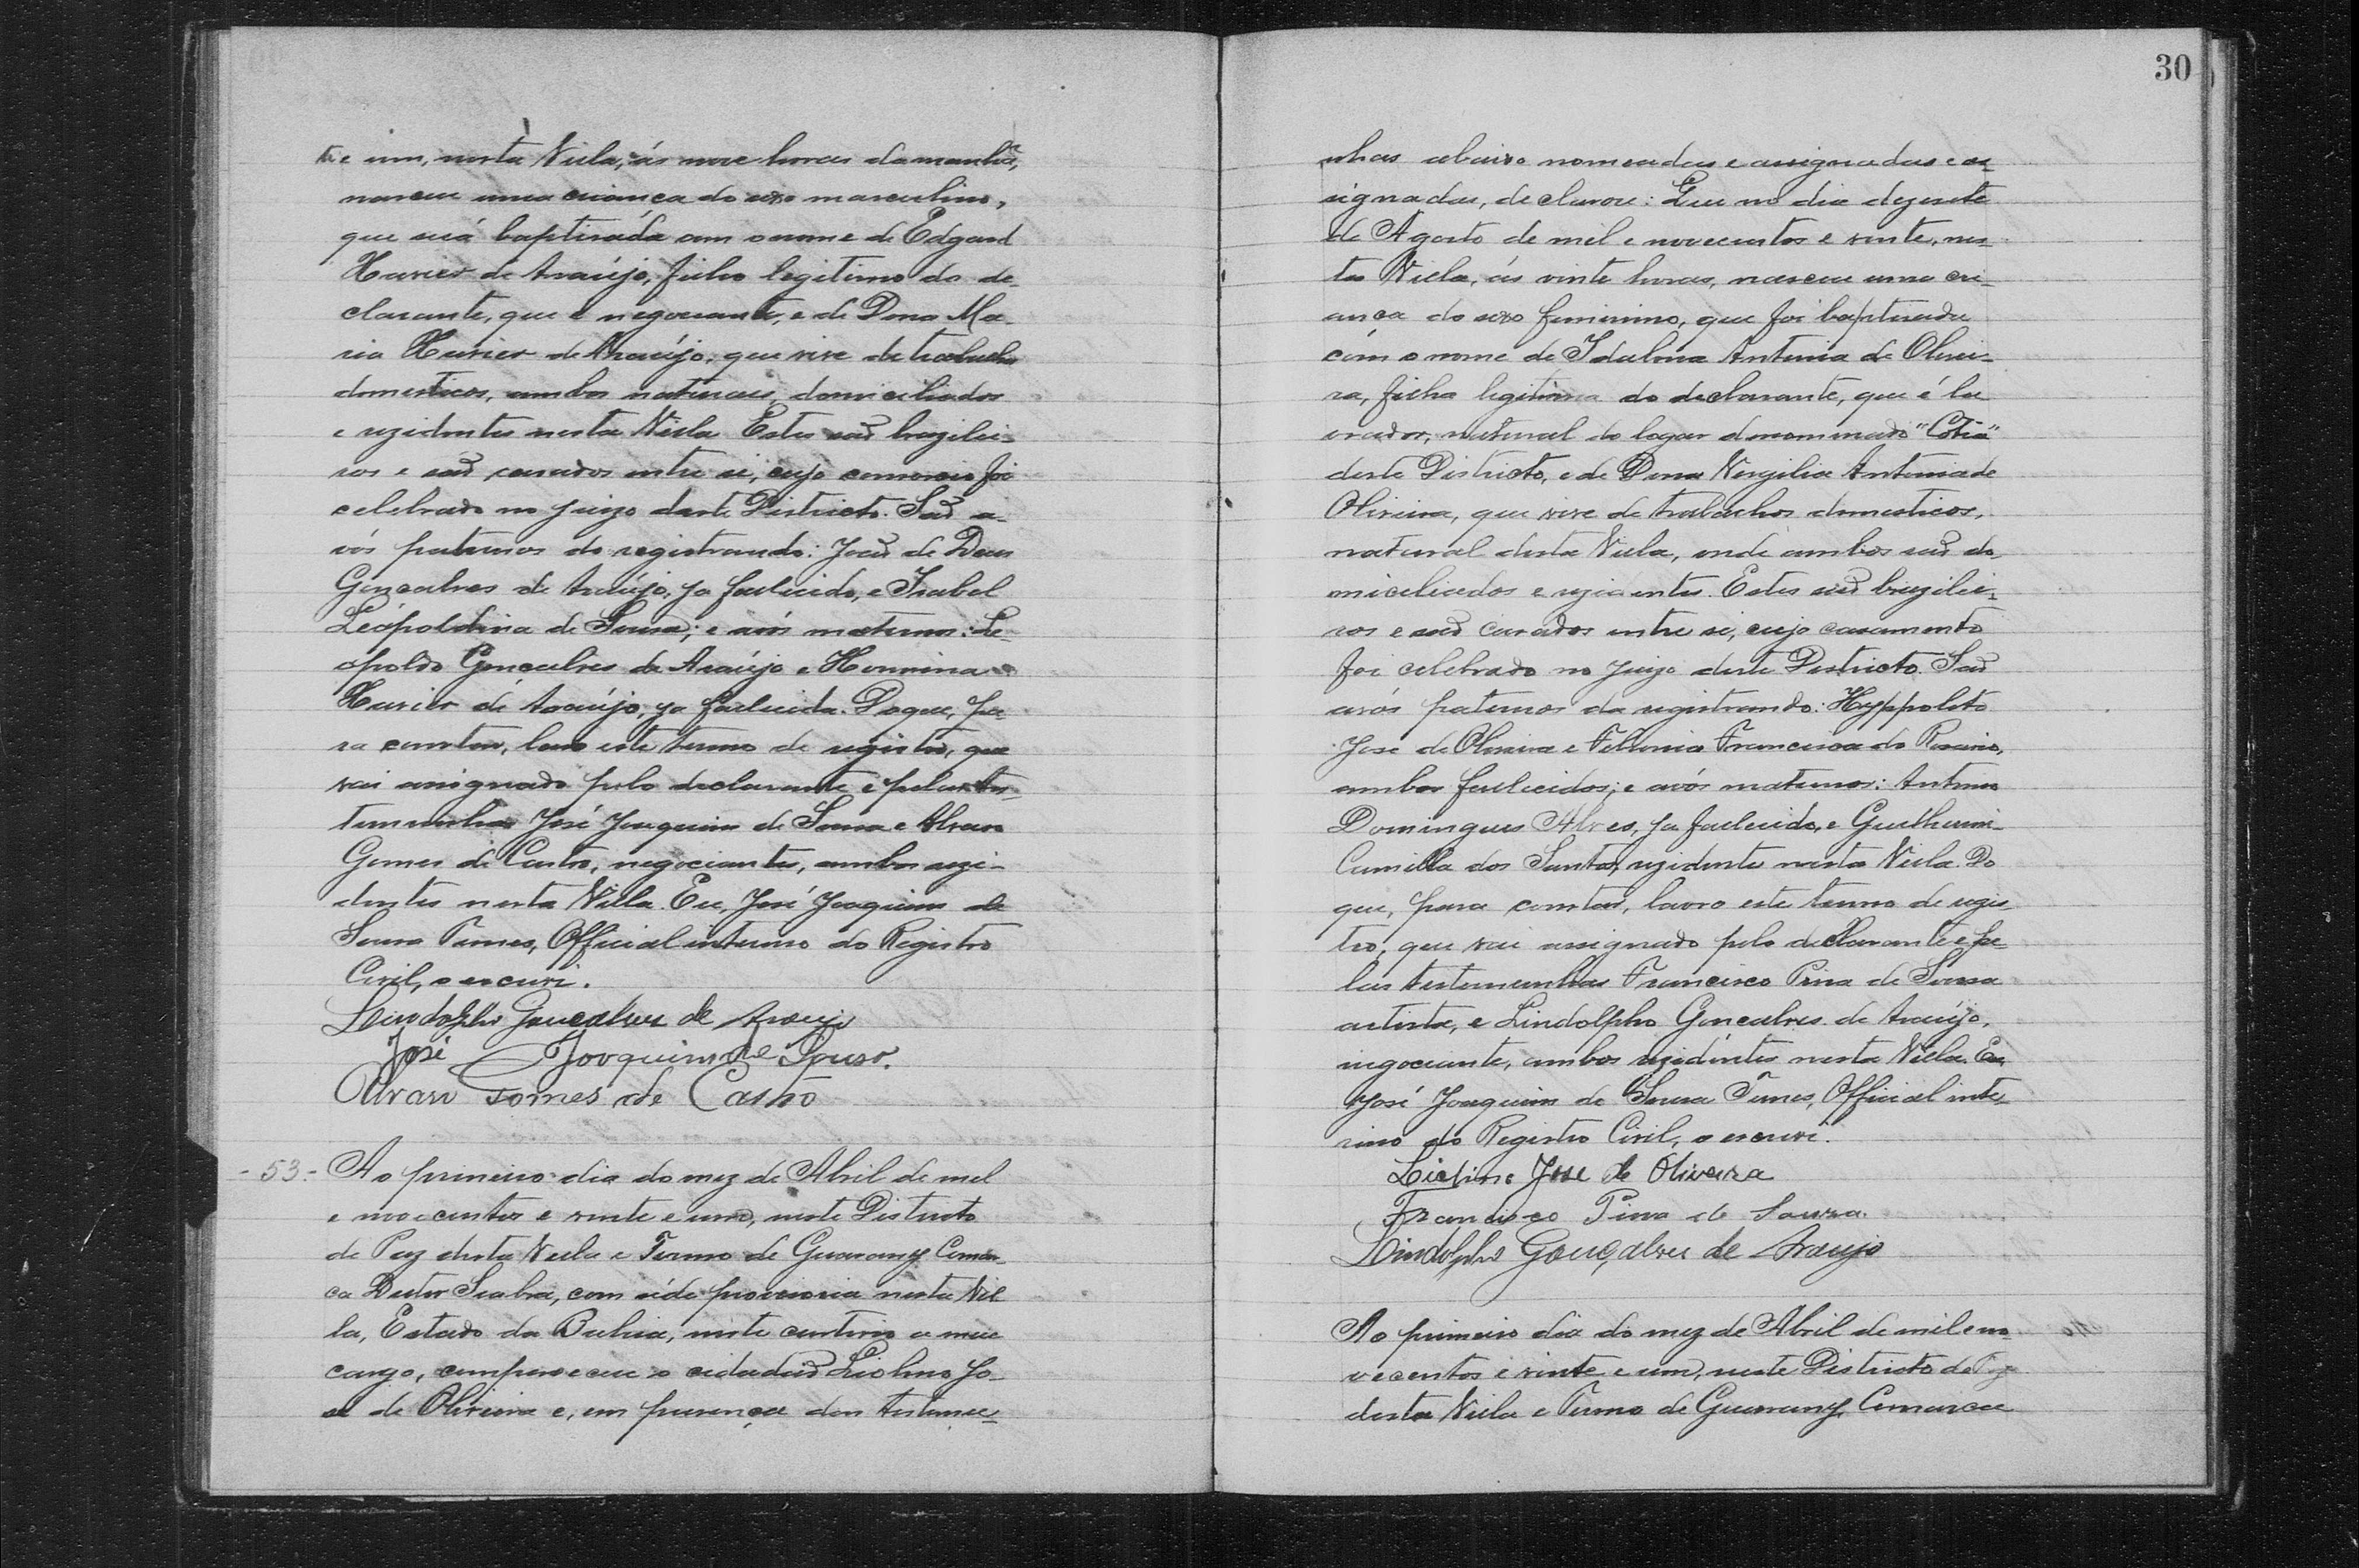 te e um, nesta Villa, ás nove horas da manhã,
nasceu uma criança do sexo masculino,
que será baptisada com o nome de Edgard
Xavier de Araújo, filho legitimo do de-
clarante, que é negociante, e de Dona Ma-
ria Xavier de Araújo, que vive de trabalhos
domesticos, ambos naturaes, domiciliados
e rezidentes nesta Villa. Estes são brazilei-
ros e são casados entre si, cujo consorcio foi
celebrado no juizo deste Districto. São a-
vós paternos do registrando: João de Deus
Gonçalves de Araújo, ja fallecido, e Isabel
Leopoldina de Sousa; e avós maternos: Le-
opoldo Gonçalves de Araújo e Hermina
Xavier de Araújo, ja fallecida. Do que, pa-
ra constar, lavro este termo de registro, que
vai assignado pelo declarante e pelas tes-
temunhas José Joaquim de Sousa e Alvaro
Gomes de Castro, negociantes, ambos rezi-
dentes nesta Villa. Eu, José Joaquim de
Sousa Tunes, Official interino do Registro
Civil, o escrevi.
Lindolpho Gonçalves de Araujo
José Joaquim de Sousa.
Alvaro Gomes de Castro
- 53.- Ao primeiro dia do mez de Abril de mil
e novecentos e vinte e um, neste Districto
de Paz desta Villa e Termo de Guarany, Comar-
ca Doutor Seabra, com séde provisoria nesta Vil-
la, Estado da Bahia, neste cartorio a meu
cargo, compareceu o cidadão Liolino Jo-
sé de Oliveira e, em presença das testemu-
30
nhas abaixo nomeadas e assignadas e as-
signadas, declarou: Que no dia dezesete
de Agosto de mil e novecentos e vinte, nes-
ta Villa, ás vinte horas, nasceu uma cri-
ança do sexo feminino, que foi baptisada
com o nome de Idalina Antonia de Olivei-
ra, filha legitima do declarante, que é la-
vrador, natural do logar denominado "Cotia"
deste Districto, e de Dona Virgilia Antonia de
Oliveira, que vive de trabalhos domesticos,
natural desta Villa, onde ambos são do-
miciliados e rezidentes. Estes são brazilei-
ros e são casados entre si, cujo casamento
foi celebrado no juizo deste Districto. São
avós paternos da registrando: Hyppolito
José de Oliveira e Felonia Francisca do Rosario,
ambos fallecidos; e avós maternos: Antonio
Domingues Alves, ja fallecido, e Guilhermi-
Camilla dos Santos, rezidente nesta Villa. Do
que, para constar, lavro este termo de regis
tro, que vai assignado pelo declarante e pe-
las testemunhas Francisco Pina de Sousa
artista, e Lindolpho Gonçalves de Araújo,
negociante, ambos rezidentes nesta Villa. Eu,
José Joaquim de Sousa Tunes, Official inte-
rino do Registro Civil, o escrevi.
Liolino Jose de Oliveira
Francisco Pina de Souza.
Lindolpho Gonçalves de Araujo
Ao primeiro dia do mez de Abril de mil e no-
vecentos e vinte e um, neste Districto de Paz
desta Villa e Termo de Guarany, Comarca